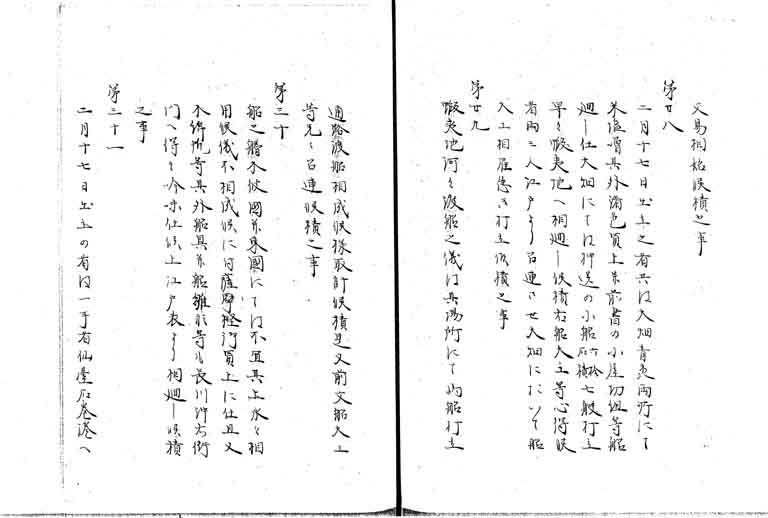 交易相始候積之事
第廿八
二月十七日出立之者共は大畑青森両所にて
米塩噌其外諸色買上米前書の小屋切組等船
廻し仕大畑にては押送の小船六拾石積七艘打立
早々蝦夷地へ相廻し候積右船大工等心得候
者両三人江戸より召連させ大畑において船
大工相雇急き打立候積之事
第廿九
蝦夷地河々渡船之儀は其場所にて向船打立
通路渡船相成候様取計候積是又前文船大工
等兄々召連候積之事
第三十
船之檣木似國并東國にては不宜其上永々相
用候儀不相成候に付薩摩檜河買上に仕且又
木綿帆等其外船具并船雛形等も長川仲右衛
門へ得と吟味仕候上江戸表より相廻し候積
之事
第三十一
二月十七日出立の者は一手者仙臺石巻港へ